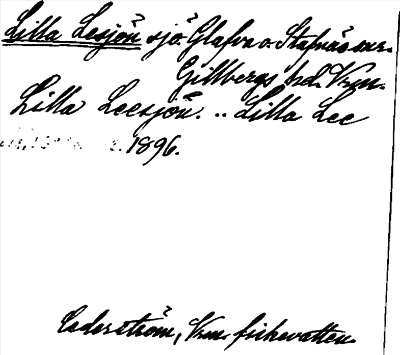 Lilla Lesjön sjö. Glafva o. Stafnäs snr.
Gillbergs hd. Vrm.
Lilla Leesjön. .. Lilla Lee
1896.
Cederström, Vrm. fiskevatten